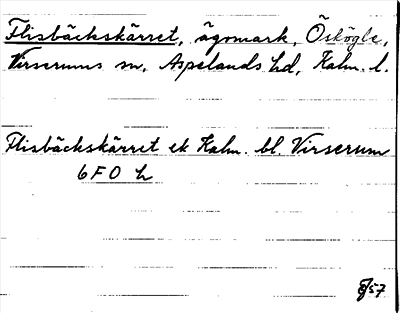 Flisbäckskärret, ägomark, Öskögle,
Virserums sn, Aspelands hd, Kalm. l.
Flisbäckskärret ek Kalm. bl. Virserum
6F0 h
57